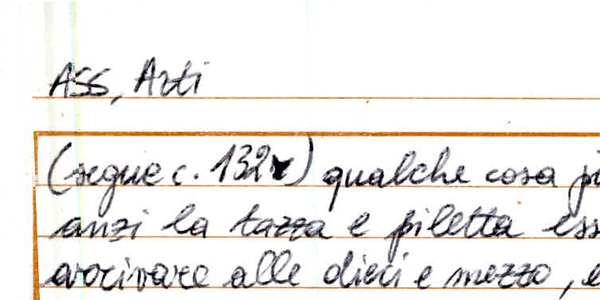 ASS, Arti
(segue c. 132v) qualche cosa pi
anzi la tazza e piletta ess
avvicinare alle dieci e mezzo, e